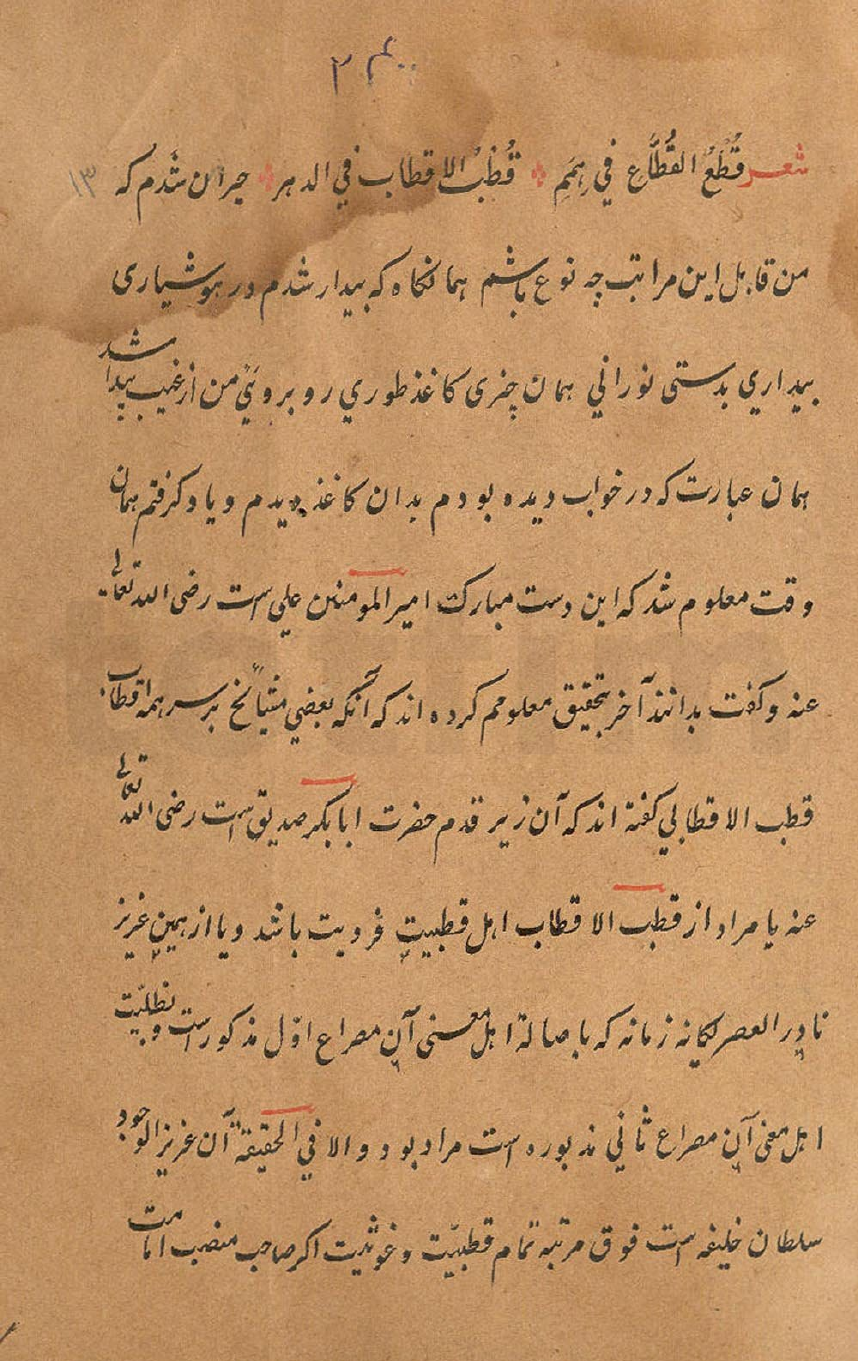 ۱۳
شعر قُطْعُ القُطَّاعِ في هِمَمِ قُطْبُ الاقطاب في الدهر حيران شدم که
من قابل این مراتب چه نوع باشم همانکاه که بیدار شدم در هوشیاری
بیداري بدستی نوراني همان چیزی کاغذ طوري روبروئي من از غیب پیدا شد
همان عبارت که در خواب دیده بودم بدان کاغذ دیدم و یاد کرفتم همان
وقت معلوم شد که این دست مبارک امیرالمومنین علي است رضی الله تعالی
عنه وکفت بدانند آخر بتحقیق معلوم کرده اند که آنکه بعضي مشایخ بر سر همه اقطاب
قطب الاقطابي کفته اند که آن زیر قدم حضرت ابابکر صدیق است رضی الله تعالی
عنه یا مراد از قطب الاقطاب اهل قطبیت فردیت باشد ویا از همین عزیز
نادر العصر یکانه زمانه که باصالة اهل معنی آن مصراع اوّل مذکور است وبظلیّت
اهل معنی آن مصراع ثاني مذبوره است مراد بود والا في الحقیقة آن عزیز الوجود
سلطان خلیفه است فوق مرتبه تمام قطبیّت و غوثیت اکر صاحب منصب امامت